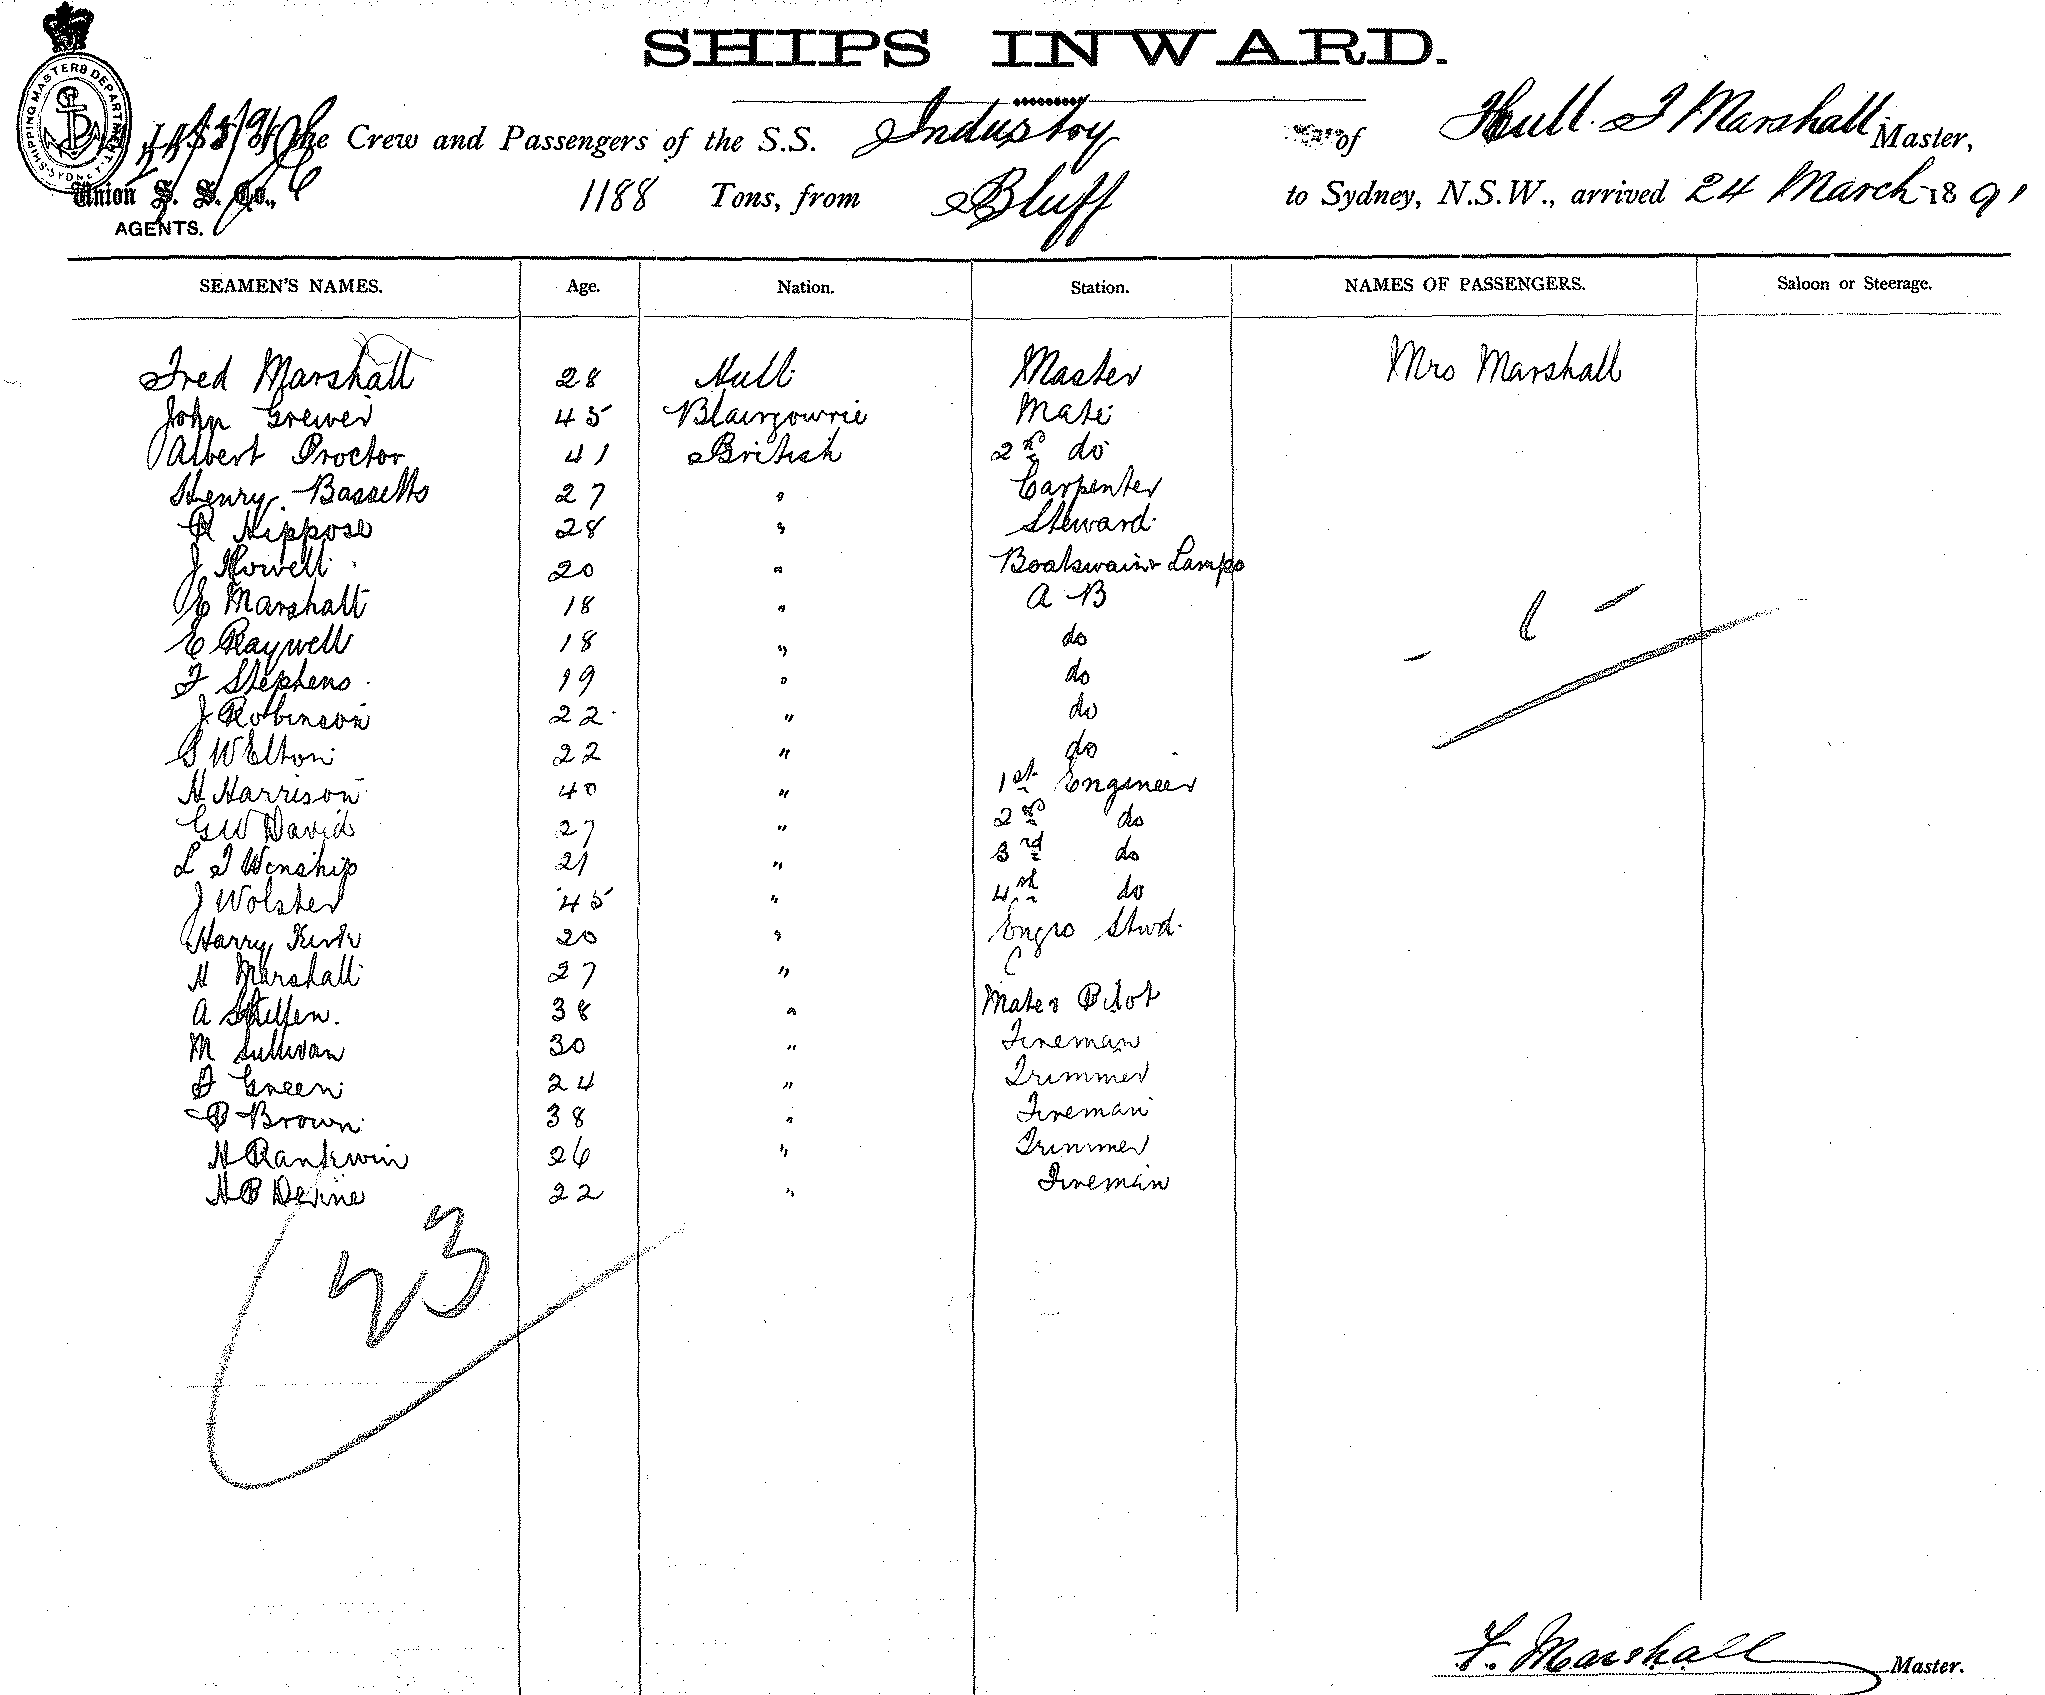 SHIPS INWARD.
SHIPPING MASTERS DEPARTMENT. SYDNEY.
of the Crew and Passengers of the S.S. Industry of Hull. F Marshall Master,
Union S. S. Co., 1188 Tons, from Bluff to Sydney, N.S.W., arrived 24 March 1891
AGENTS.
SEAMEN'S NAMES. Age. Nation. Station. NAMES OF PASSENGERS. Saloon or Steerage.
Fred Marshall 28 Hull Master Mrs Marshall
John Grewer 45 Blairgowrie Mate
Albert Proctor 41 British 2nd do
Henry Bassetts 27 " Carpenter
R Hippose 28 " Steward
J Howell 20 " Boatswain & Lamps
E Marshall 18 " A B
E Raywell 18 " do
F Stephens 19 " do
J Robinson 22 " do
S W Elton 22 " do
H Harrison 40 " 1st Engineer
G W David 27 " 2nd do
L T Winship 21 " 3rd do
J Wolster 45 " 4th do
Harry Kirk 20 " Engrs Stwd.
H Marshall 27 "
A 38 " Mate & Pilot
M Sullivan 30 " Fireman
F Green 24 " Trimmer
P Brown 38 " Fireman
H Rankwin 26 " Trimmer
H P Devine 22 " Fireman
23
F. Marshall Master.